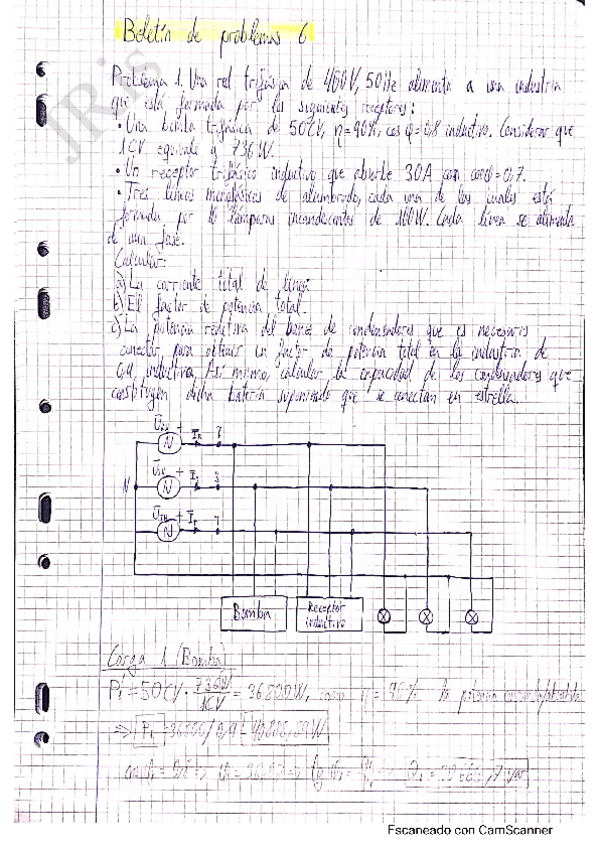 Boletín de problemas 6
JRis
Problema 1. Una red trifásica de 400V, 50Hz alimenta a una industria
que está formada por los siguientes receptores:
• Una bomba trifásica de 50CV, η=90%, cos φ=0,8 inductivo. Considerar que
1CV equivale a 736W.
• Un receptor trifásico inductivo que absorbe 30A con cosφ=0,7.
• Tres líneas monofásicas de alumbrado, cada una de las cuales está
formada por lámparas incandescentes de 100W. Cada línea se alimenta
de una fase.
Calcular:
a) La corriente total de línea.
b) El factor de potencia total.
c) La potencia reactiva del banco de condensadores que es necesario
conectar para obtener un factor de potencia total en la industria de
inductivo. Así mismo, calcular la capacidad de los condensadores que
constituyen dicha batería suponiendo que se conectan en estrella.
N
N
N
N
Bomba
Receptor
inductivo
Carga 1 (Bomba)
50CV · 736W/1CV = 36.800W, como η = 90% la potencia
Escaneado con CamScanner